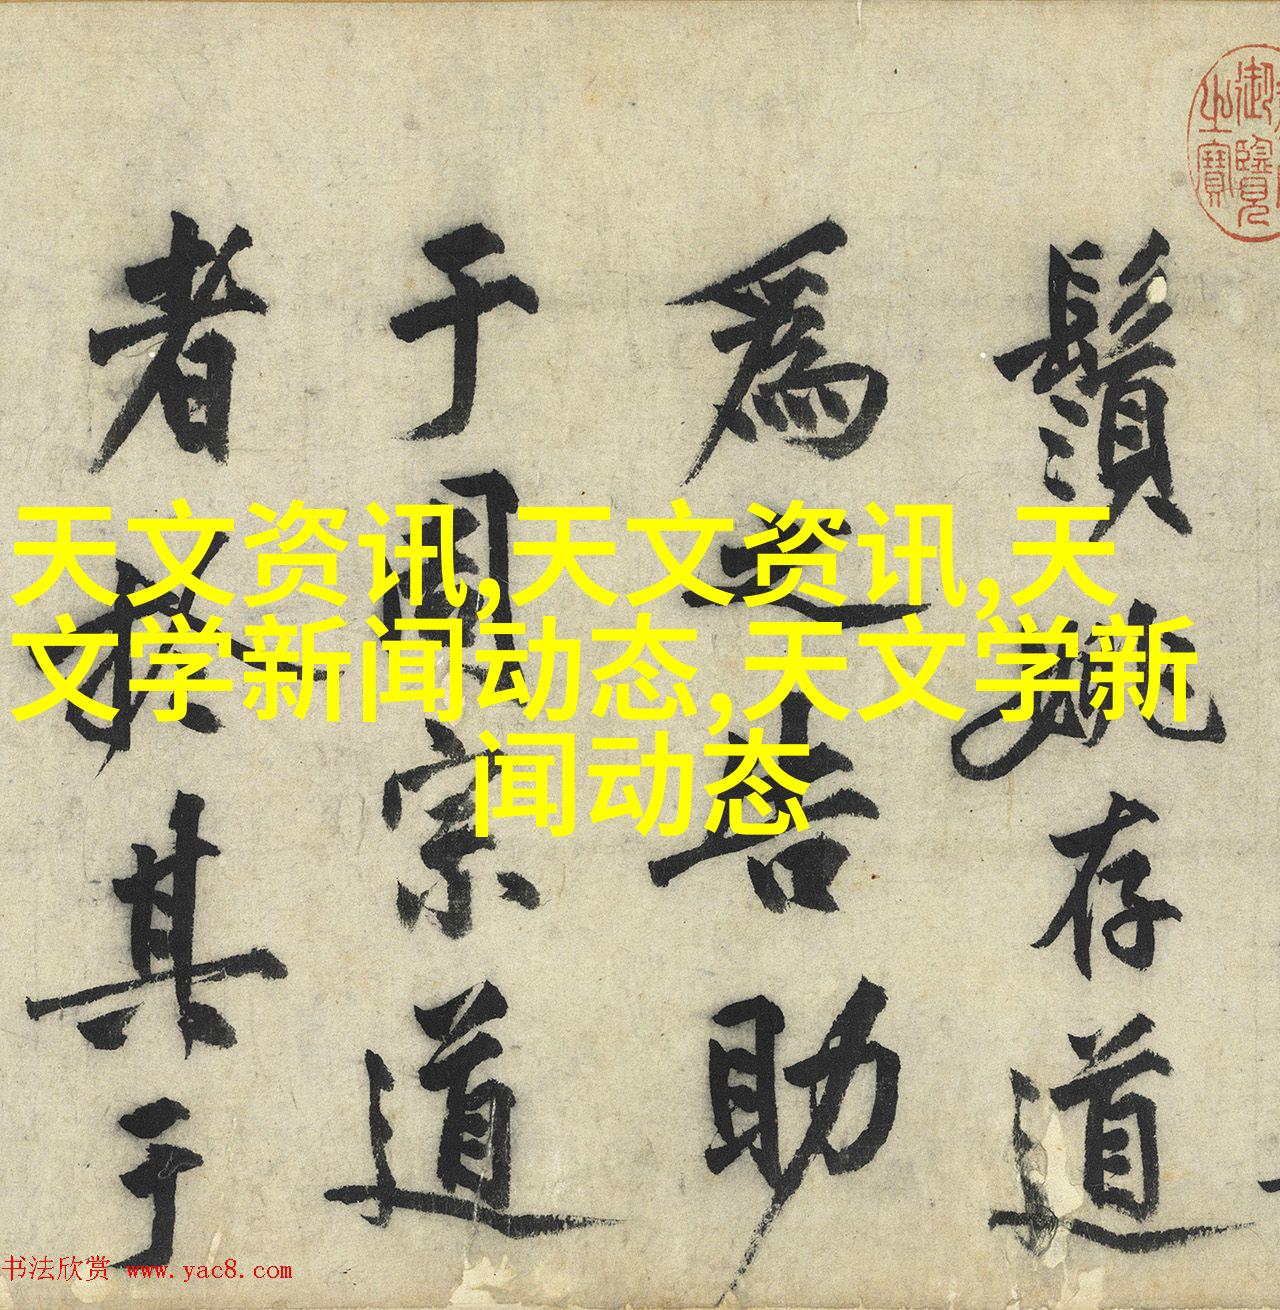 天文资讯,天文资讯,天
文学新闻动态,天文学新
闻动态
御覽
之寶
鬚姚存道
為之告助
于周宗道
者於其于
书法欣赏 www.yac8.com